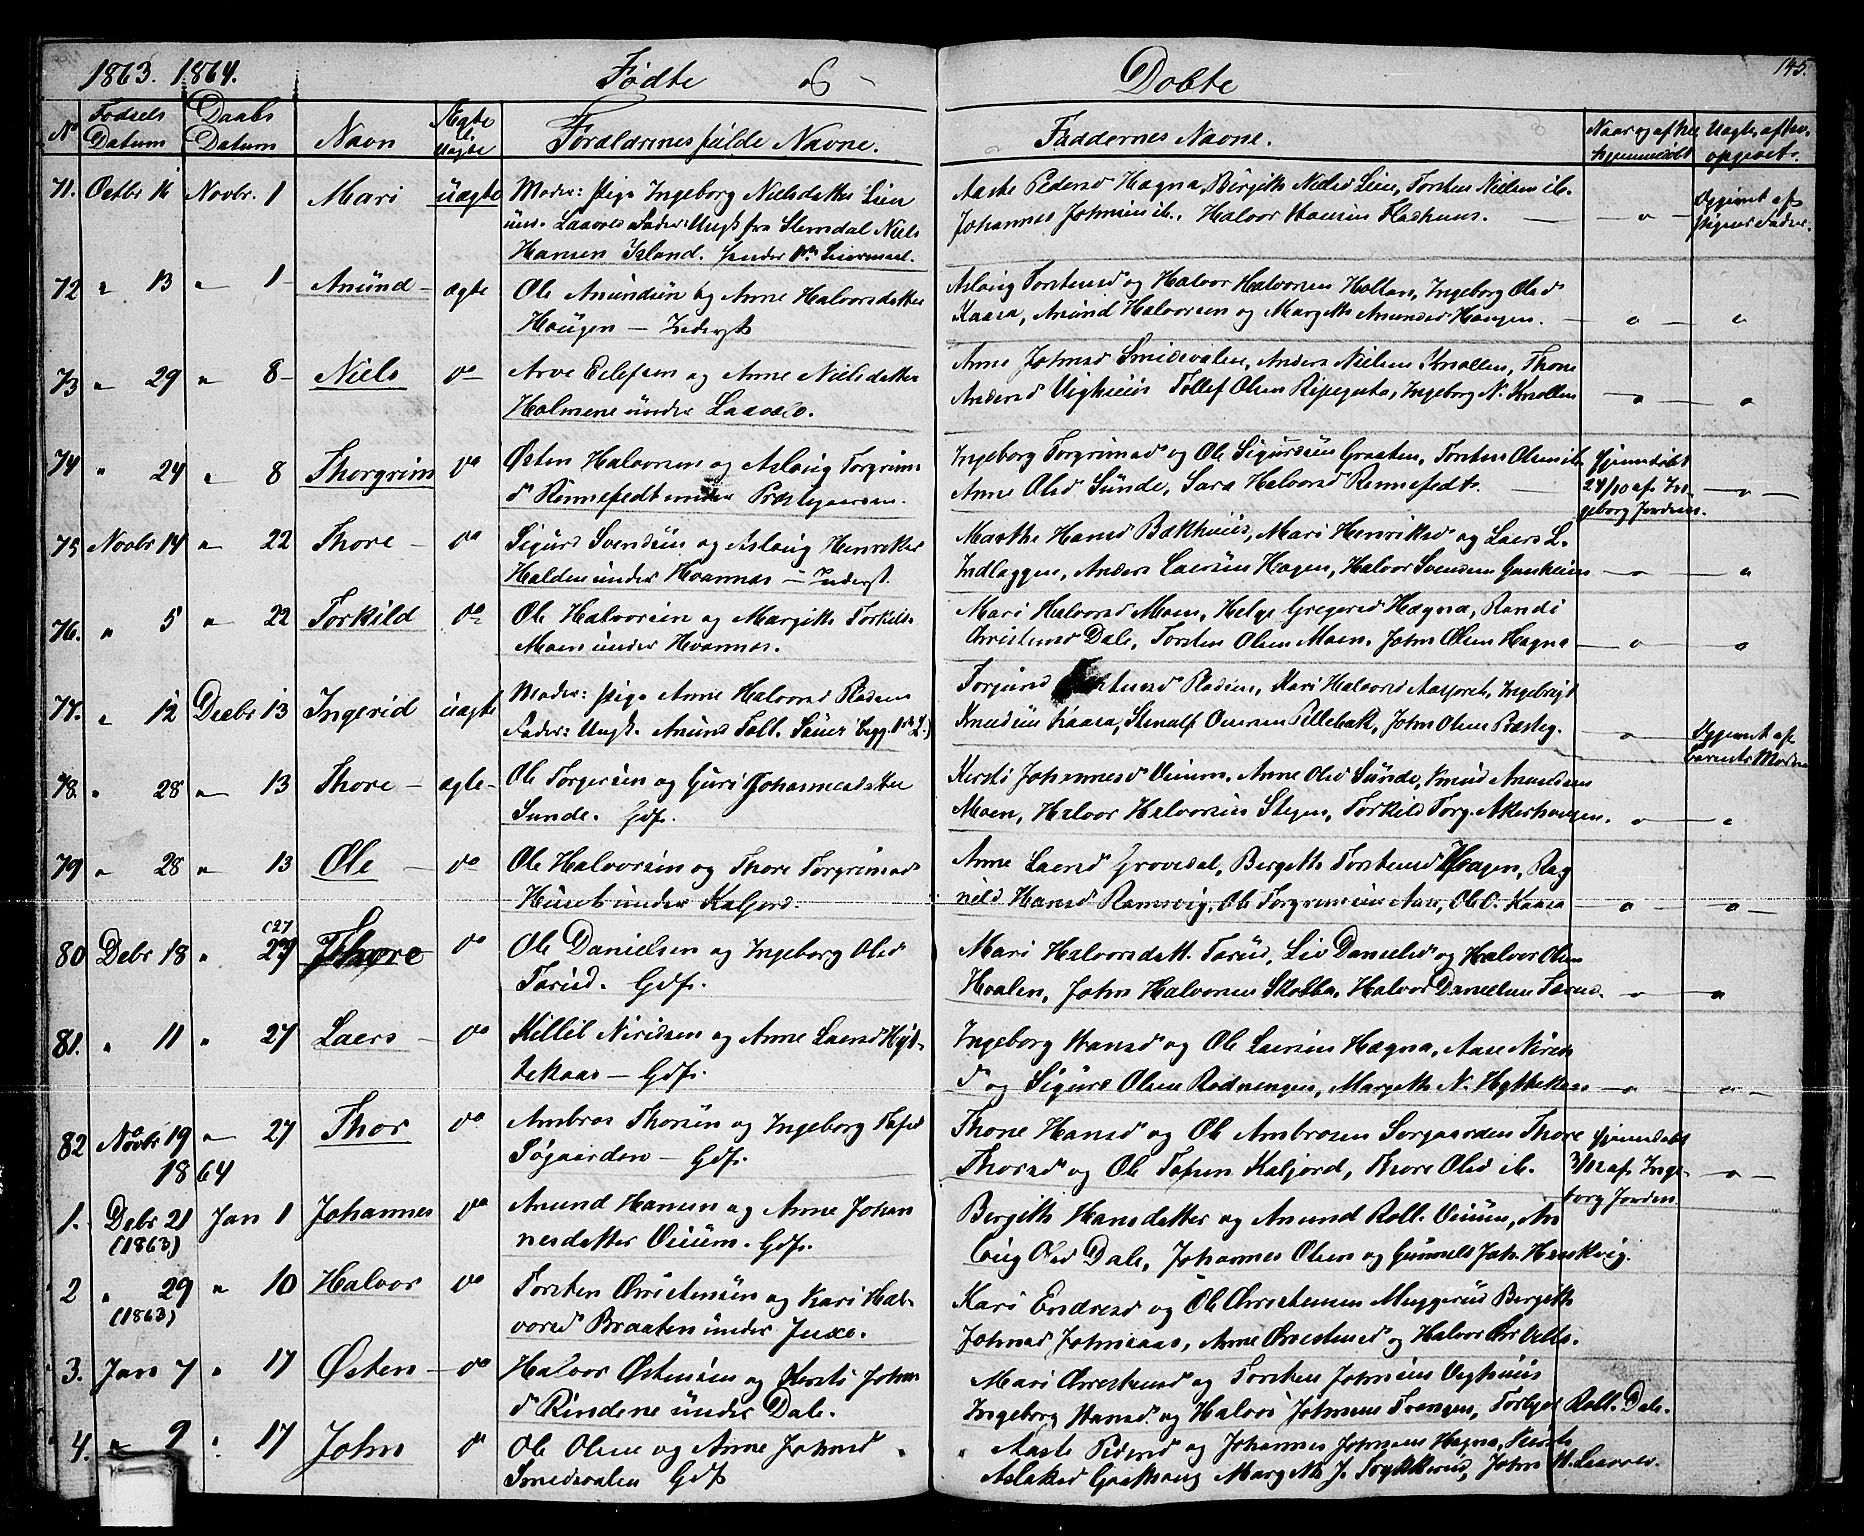 1863. 1864. Fødte og Døbte 145.
No Fødsels Datum Daabs Datum Navn Ægte l. Uægte Forældrenes fulde Navne. Faddernes Navne. Naar og af hvem hjemmedøbt Uægte, af hvem opgivet.
71. Octbr 16 Novbr. 1 Mari uægte Moder: Pige Ingeborg Nielsdatter Lien
Fader Ungk. fra Slemdal Niels
Hansen Island. Hendes 1ste Leiermaal.
Aaste Pedersd Hægna, Birgith Nielsd Lien, Torsten Nielsen ib.
Johannes Johnsen ib., Halvor Hansen Flathuus. — " — Opgivet af Pigens Fader.
72 " 13 " 1 Anund ægte Ole Anundsen og Anne Halvorsdatter
Haugen — Inderst
Aslaug Torstensd og Halvor Halvorsen Holtan, Ingeborg Olsd
Kaasa, Anund Halvorsen og Margith Anundsd Haugen. " "
73 " 29 " 8 Niels do Arve Eilefsen og Anne Nielsdatter
Holmene under Laavele.
Anne Johnsd Smidsvalen, Anders Nielsen Knollen, Thone
Andersd Vighuus Tollef Olsen Ripeguta, Ingeborg N. Knollen " "
74 " 24 " 8 Thorgrim do Østen Halvorsen og Aslaug Torgrims
d Rennefedt under Præstegaarden.
Ingeborg Torgrimsd og Ole Sigurdsen Graaten, Torsten Olsen ib.
Anne Olsd Sunde, Sara Halvorsd Rennefedt. Hjemmedøbt
24/10 af In-
geborg Jordem. — " —
75 Novbr 14 " 22 Thore do Sigurd Svendsen og Aslaug Henriksd
Halden under Hvannas — Inderst.
Marthe Hansd Bakhuus, Mari Henriksd og Laers L.
Indlaggen, Anders Laersen Hagen, Halvor Svendsen Gaasheim " "
76. " 5 " 22 Torkild do Ole Halvorsen og Margith Torkils-
Moen under Hvannas.
Mari Halvorsd Moen, Helge Gregersd Hægna, Randi
Christensd Dale, Torsten Olsen Moen, John Olsen Hagna " "
77. " 12 Decbr 13 Ingerid uægte Moder: Pige Anne Halvorsd
Fader: Ungk. Anund Toll. Sauer Begg. 1ste L.)
Torjund Plasin, Kari Halvorsd Aasjoret, Ingebrigt
Knudsen Kaasa, Stenulf Overson Pellebak, John Olsen Præsteg. " Opgivet af
Barnets Moder
78. " 28 " 13 Thore ægte Ole Torgersen og Guri Johannesdatter
Sunde. Gdf.
Kersti Johannesd Viium, Anne Olsd Sunde, Knud Anundsen
Moen, Halvor Halvorsen Stegen, Torkild Torg. Akerhaugen. " "
79 " 28 " 13 Ole do Ole Halvorsen og Thore Torgrimsd
Huset under Kaljord.
Anne Laersd Grovedal, Bergith Torstensd Hagen, Rag
nild Hansd Ramsvig, Ole Torgrimsen Aase, Ole O. Kaasa " "
80 Debr 18 " 27 (27 Thore do Ole Danielsen og Ingeborg Olsd
Tarud. Gdf.
Mari Halvorsdatt. Tarud, Liv Danielsd og Halvor Olsen
Hvalen, John Halvorsen Skolba, Halvor Danielsen Tarud. " "
81. " 11 " 27 Laers do Killil Niridsen og Anne Laersd Hyt-
tekaas — Gdf.
Ingeborg Hansd og Ole Laersen Hægna, Aase Nirids
d og Sigurd Olsen Rodningen, Margith N. Hyttekaas " "
82 Novbr 19 " 27 Thor do Ambros Thorsen og Ingeborg Tofsd
Søgaarden — Gdf.
Thone Hansd og Ole Ambrosen Sørgaarden Thore
Thorsd og Ole Tofsen Kaljord, Thore Olsd ib. Hjemmedøbt
3/12 af Inge-
borg Jordem — " —
1864
1. Debr 21 (1863) Jan 1 Johannes do Anund Hansen og Anne Johan
nesdatter Viium. Gdf.
Bergith Hansdatter og Anund Roll. Viium, As
laug Olsd Dale, Johannes Olsen og Gunnild Joh. Heiskvig.
2 " 29 (1863) " 10 Halvor do Torsten Christensen og Kari Hal-
vorsd Braaten under Juxe.
Kari Endresd og Ole Christensen Muggerud Bergith
Johnsd Johnsaas, Anne Christensd og Halvor Chr.
3. Jan 7 " 17 Østen do Halvor Østensen og Kersti Johns
d Rindene under Dale.
Mari Christensd og Torsten Johnsen Vighuus
Ingeborg Hansd og Halvor Johnsen Tvangen, Torbjør Roll. Dale.
4. " 9 " 17 John do Ole Olsen og Anne Johnsd
Smedsvalen Gdf
Aaste Pedersd og Johannes Johnsen Hagna, Kersti
Aslaksd Gaashaug Margith J. Trykkerud, John H. Laavele.